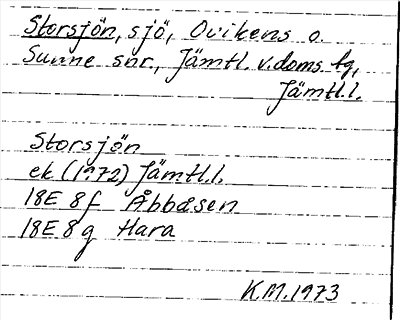 Storsjön, sjö, Ovikens o.
Sunne snr., Jämtl. v. doms. tg,
Jämtl.l.
Storsjön
ek (1972) Jämtl.l.
18E 8f Åbbåsen
18E 8g Hara
K.M. 1973